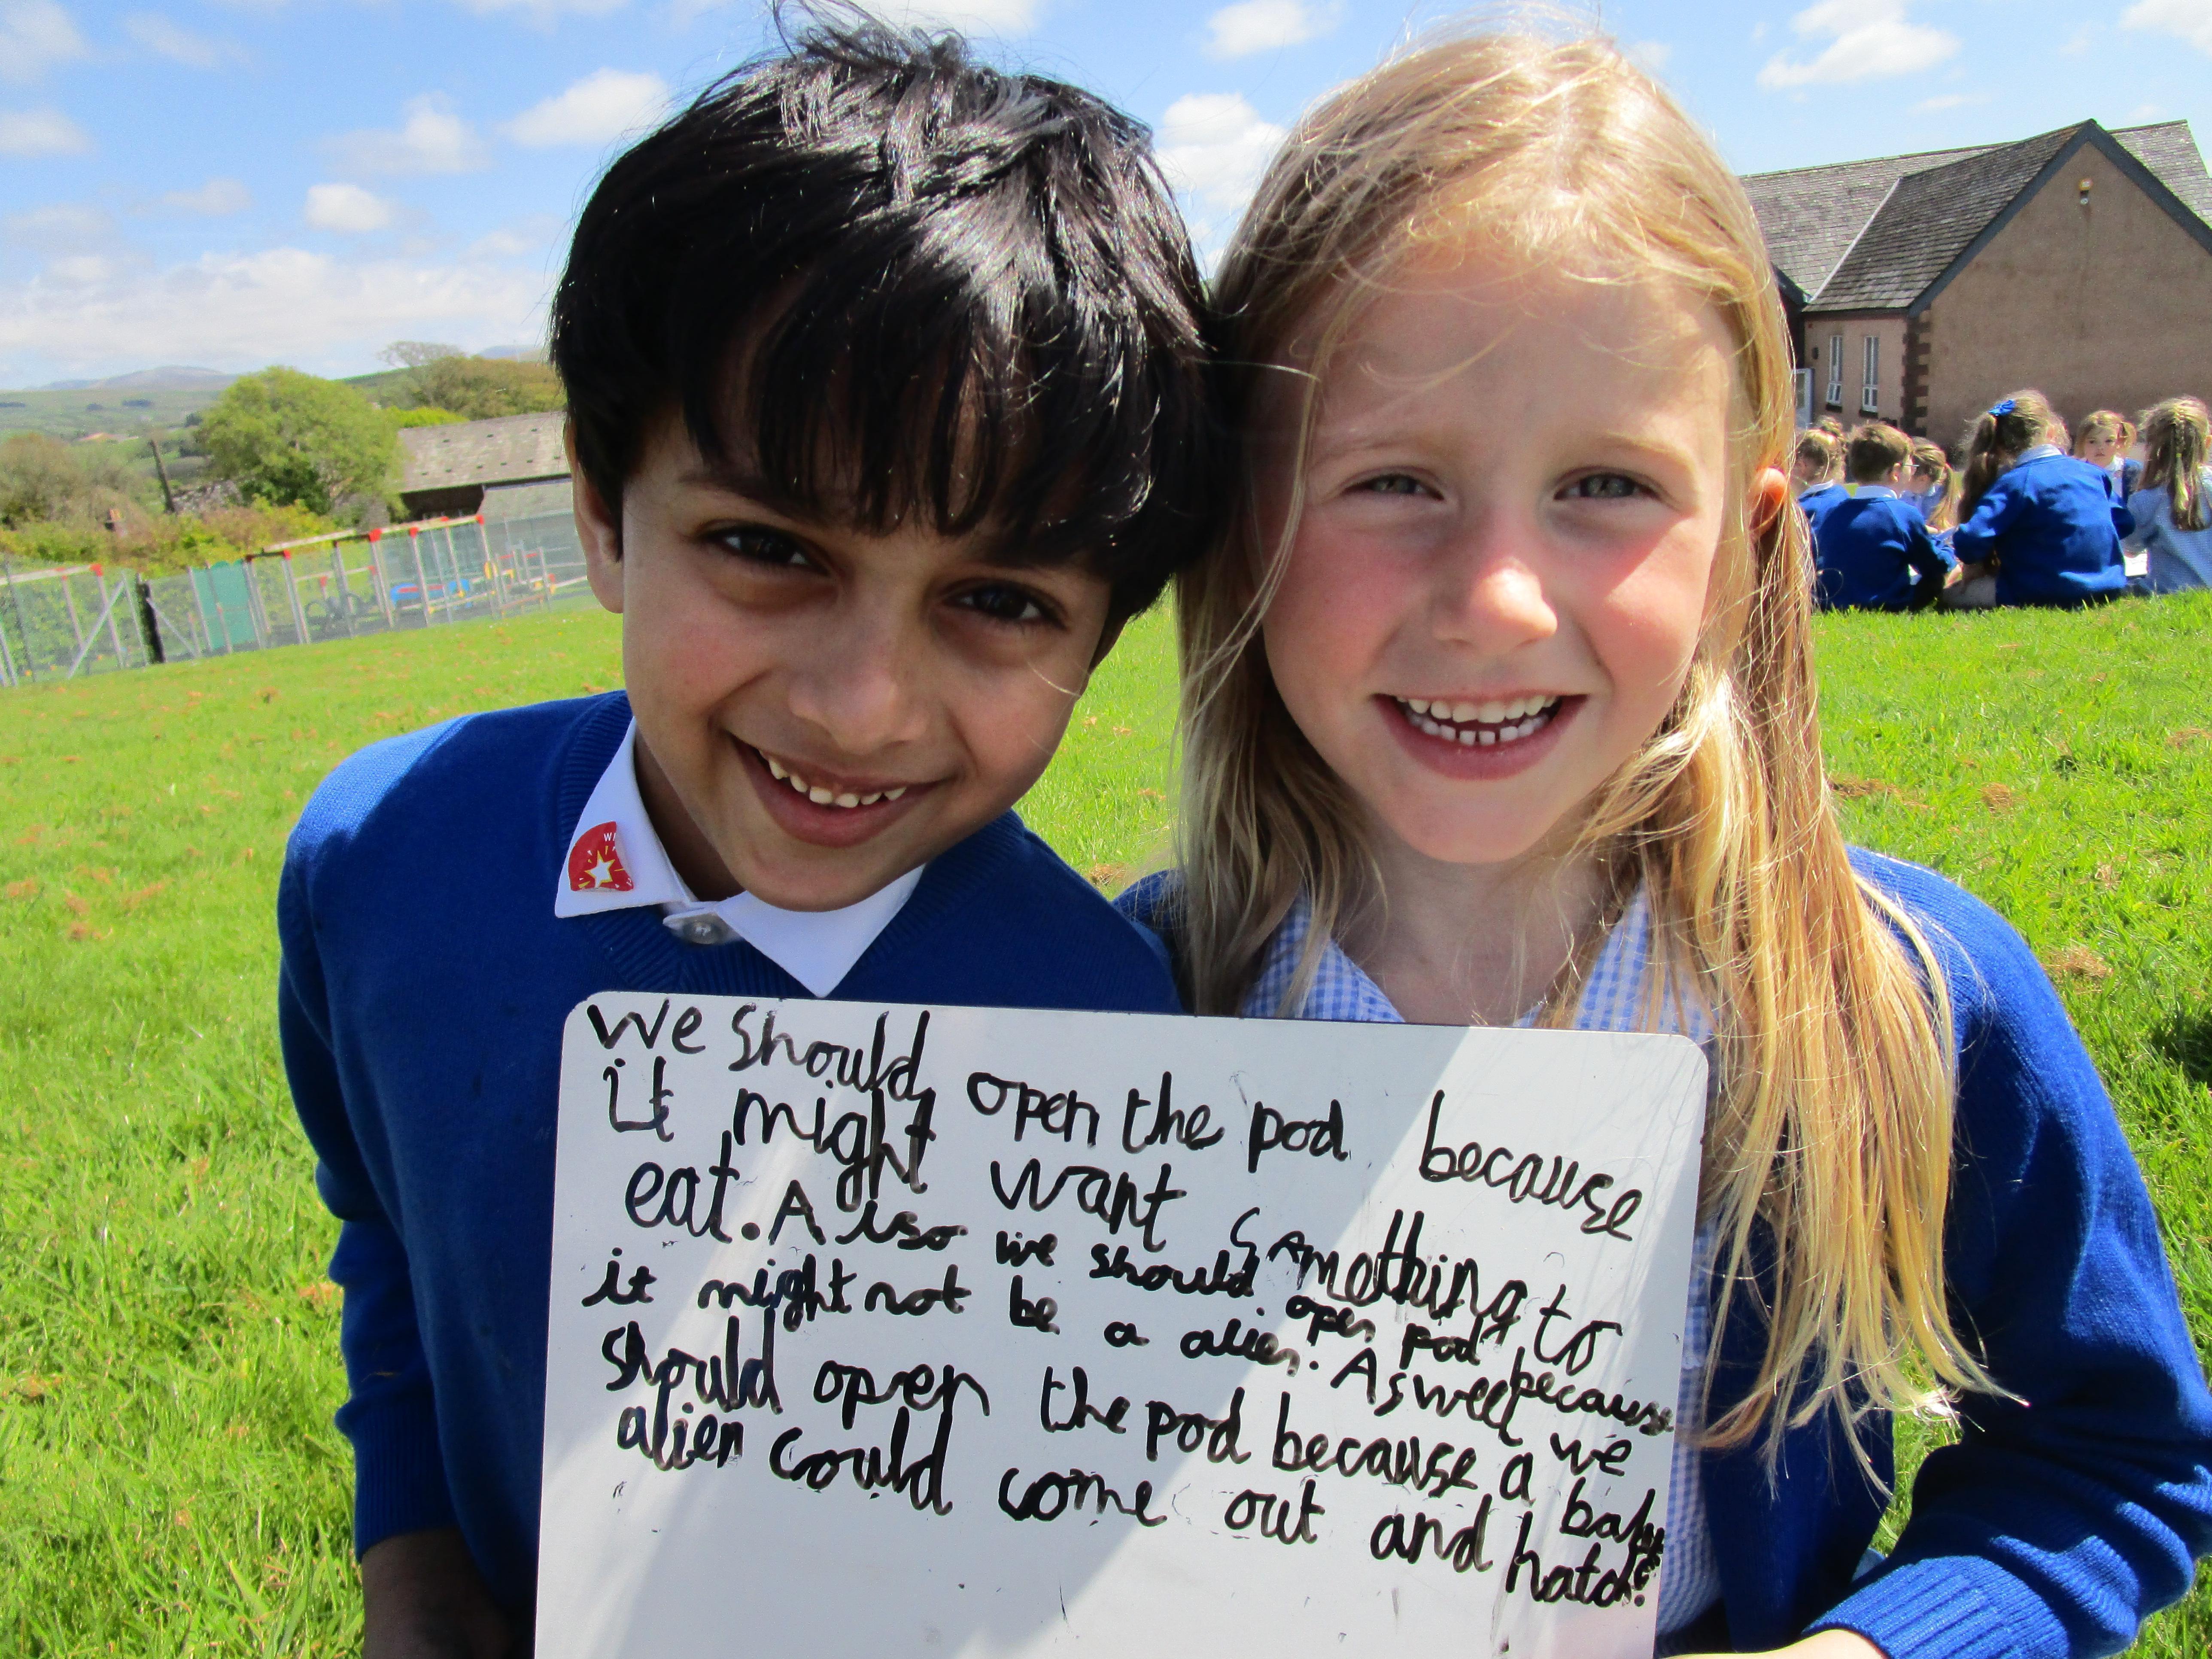 We should open the pod because
it might want something to
eat. Also we should open pod because
it might not be a alien. Aswell we
should open the pod because a baby
alien could come out and hatch!